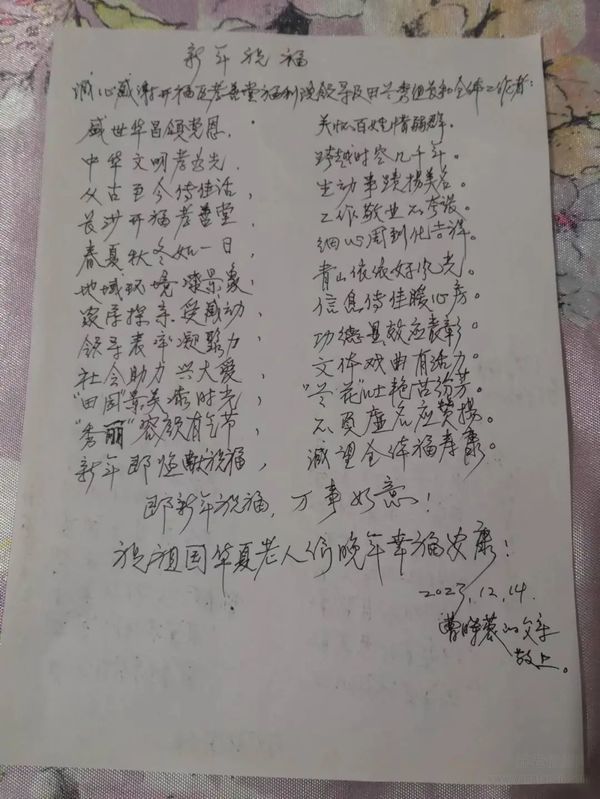 新年祝福
诚心感谢开福区孝善堂福利院领导及田兰秀组长和全体工作者：
盛世华昌颂党恩， 关怀百姓情弱群。
中华文明孝为光， 跨越时空几千年。
从古至今传佳话， 生动事蹟扬美名。
长沙开福孝善堂， 工作敬业不夸张。
春夏秋冬如一日， 细心周到化吉祥。
地域环境添景象， 青山依依好风光。
家属探亲受感动， 信息传佳暖心房。
领导表率凝聚力， 功德显效应表彰。
社会助力兴大爱， 文体戏曲有活力。
"田园"景美添时光， "兰花"吐艳苦芬芳。
"秀丽"容颜有气节， 不负虚名应赞扬。
新年即临献祝福， 诚望全体福寿康。
即新年祝福，万事如意！
祝祖国华夏老人们晚年幸福安康！
2023.12.14.
曹 蓉的父亲
敬上。